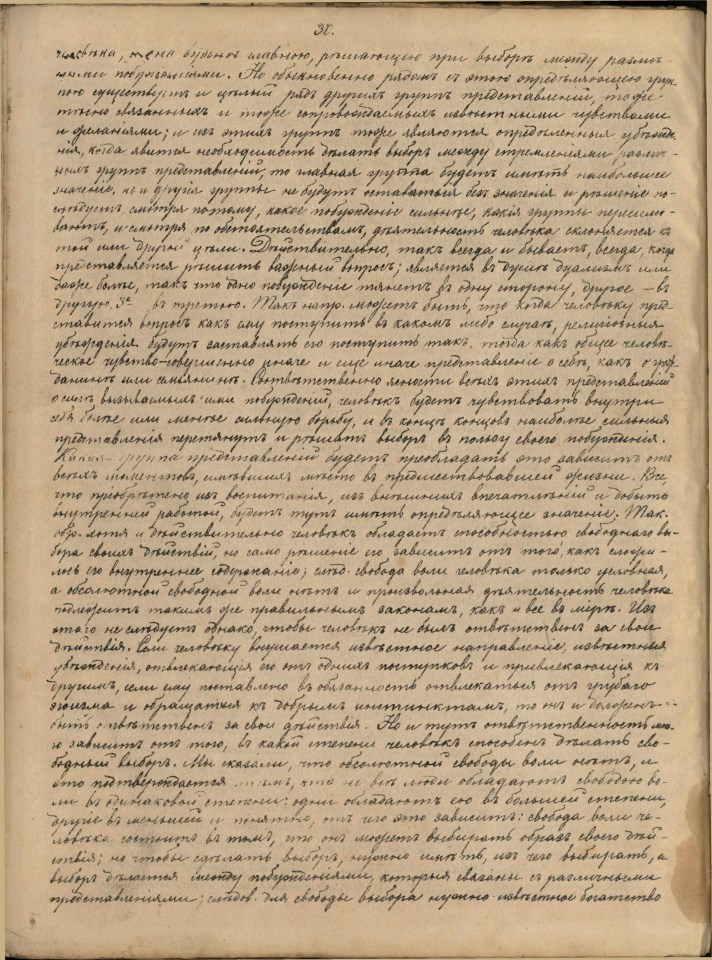 32.
человѣка, и она будетъ главною, рѣшающею при выборѣ между различ-
ными побужденіями. Но обыкновенно рядомъ съ этою опредѣляющею груп-
пою существуетъ и цѣлый рядъ другихъ группъ представленій, тоже
тѣсно связанныхъ и тоже сопровождаемыхъ извѣстными чувствами
и желаніями; и изъ этихъ группъ тоже являются опредѣленныя убѣжде-
нія, когда явится необходимость дѣлать выборъ между стремленіями различ-
ныхъ группъ представленій, то главная группа будетъ имѣть наибольшее
значеніе, но и другія группы не будутъ оставаться безъ значенія и рѣшеніе по-
слѣдуетъ смотря потому, какое побужденіе сильнѣе, какія группы пересили-
ваютъ, и смотря по обстоятельствамъ, дѣятельность человѣка склоняется къ
той или другой цѣли. Дѣйствительно, такъ всегда и бываетъ, всегда, когда
представляется рѣшить важный вопросъ; является въ душѣ дуализмъ или
даже болѣе, такъ что одно побужденіе тянетъ въ одну сторону, другое – въ
другую, 3е въ третью. Такъ напр. можетъ быть, что когда человѣку пред-
ставится вопросъ какъ ему поступить въ какомъ либо случаѣ, религіозныя
убѣжденія будутъ заставлять его поступить такъ, тогда какъ общее человѣ-
ческое чувство – совершенно иначе и еще иначе представленіе о себѣ, какъ о граж-
данинѣ или семьянинѣ. Соотвѣтственно ясности всѣхъ этихъ представленій
о силѣ вызываемыхъ ими побужденій, человѣкъ будетъ чувствовать внутри
себя болѣе или менѣе сильную борьбу, и въ концѣ концовъ наиболѣе сильныя
представленія перетянутъ и рѣшатъ выборъ въ пользу своего побужденія.
Какая группа представленій будетъ преобладать это зависитъ отъ
всѣхъ моментовъ, имѣвшихъ мѣсто въ предшествовавшей жизни. Все,
что пріобрѣтено изъ воспитанія, изъ внѣшнихъ впечатлѣній и добыто
внутренней работой, будетъ тутъ имѣть опредѣляющее значеніе. Так.
обр. хотя и дѣйствительно человѣкъ обладаетъ способностью свободнаго вы-
бора своихъ дѣйствій, но само рѣшеніе его зависитъ отъ того, какъ сложи-
лось его внутреннее содержаніе; слѣд. свобода воли человѣка только условная,
а абсолютной свободной воли нѣтъ и произвольная дѣятельность человѣка
подлежитъ такимъ же правильнымъ законамъ, какъ и все въ мірѣ. Изъ
этого не слѣдуетъ однако, чтобы человѣкъ не былъ отвѣтственъ за свои
дѣйствія. Если человѣку внушается извѣстное направленіе, извѣстныя
убѣжденія, отвлекающія его отъ однихъ поступковъ и привлекающія къ
другимъ, если ему поставлено въ обязанность отвлекаться отъ грубаго
эгоизма и обращаться къ добрымъ инстинктамъ, то онъ и долженъ
быть отвѣтственъ за свои дѣйствія. Но и тутъ отвѣтственность
зависитъ отъ того, въ какой степени человѣкъ способенъ дѣлать сво-
бодный выборъ. Мы сказали, что абсолютной свободы воли нѣтъ, и
это подтверждается тѣмъ, что не всѣ люди обладаютъ свободою во-
ли въ одинаковой степени: одни обладаютъ ею въ большей степени,
другіе въ меньшей и понятно, отъ чего это зависитъ: свобода воли че-
ловѣка состоитъ въ томъ, что онъ можетъ выбирать образъ своего дѣй-
ствія; но чтобы сдѣлать выборъ, нужно имѣть, изъ чего выбирать, а
выборъ дѣлается между побужденіями, которыя связаны съ различными
представленіями; слѣдов. для свободы выбора нужно извѣстное богатство